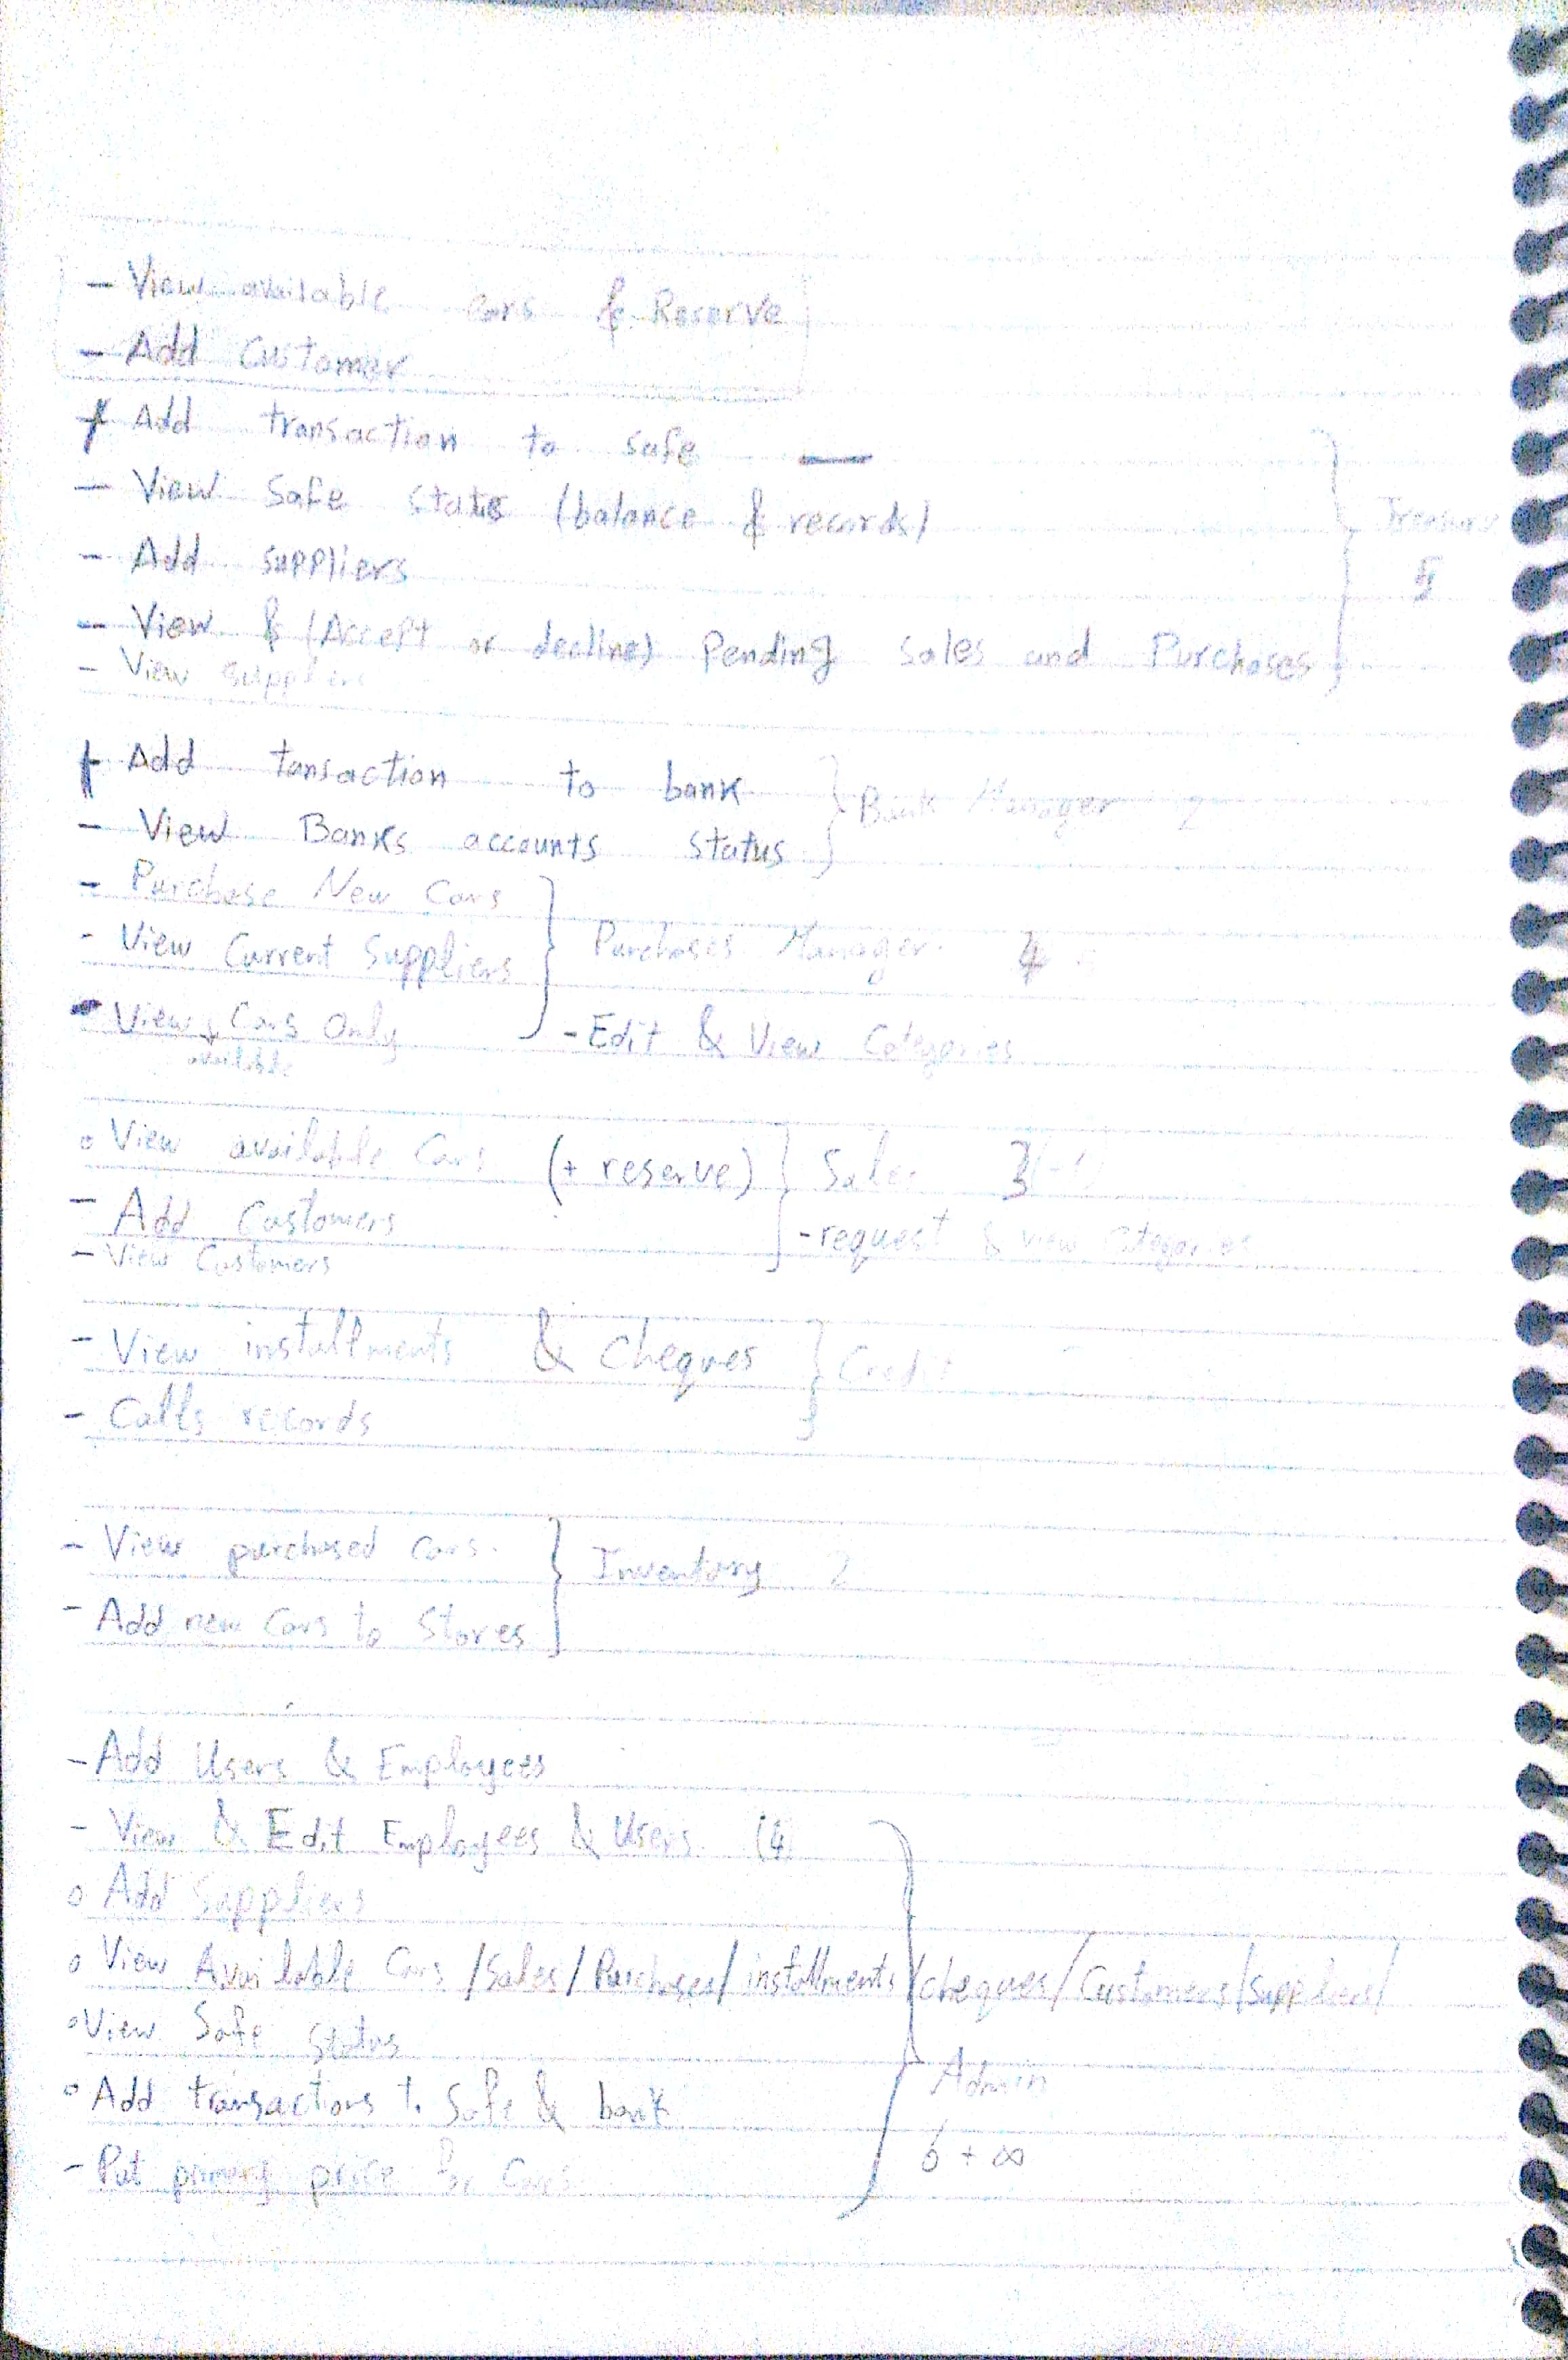 - View available cars & Reserve
- Add Customer
- Add transaction to safe —
- View Safe status (balance & records)
- Add suppliers
- View & (Accept or decline) Pending sales and Purchases
- View suppliers
Treasury
5
- Add tansaction to bank
- View Banks accounts status
Bank Manager 2
- Purchase New Cars
- View Current Suppliers
- View Cars Only
available
Purchases Manager 4
- Edit & View Categories
o View available Cars (+ reserve)
- Add Customers
- View Customers
Sales 3
- request & view categories
- View installments & Cheques
- Calls records
Credit
- View purchased Cars.
- Add new Cars to Stores
Inventory 2
- Add Users & Employees
- View & Edit Employees & Users (4)
o Add Suppliers
o View Available Cars /Sales/Purchases/installments/cheques/Customers/Suppliers/
o View Safe Status
o Add transactions to Safe & bank
- Put primary price for Cars
Admin
6 + ∞